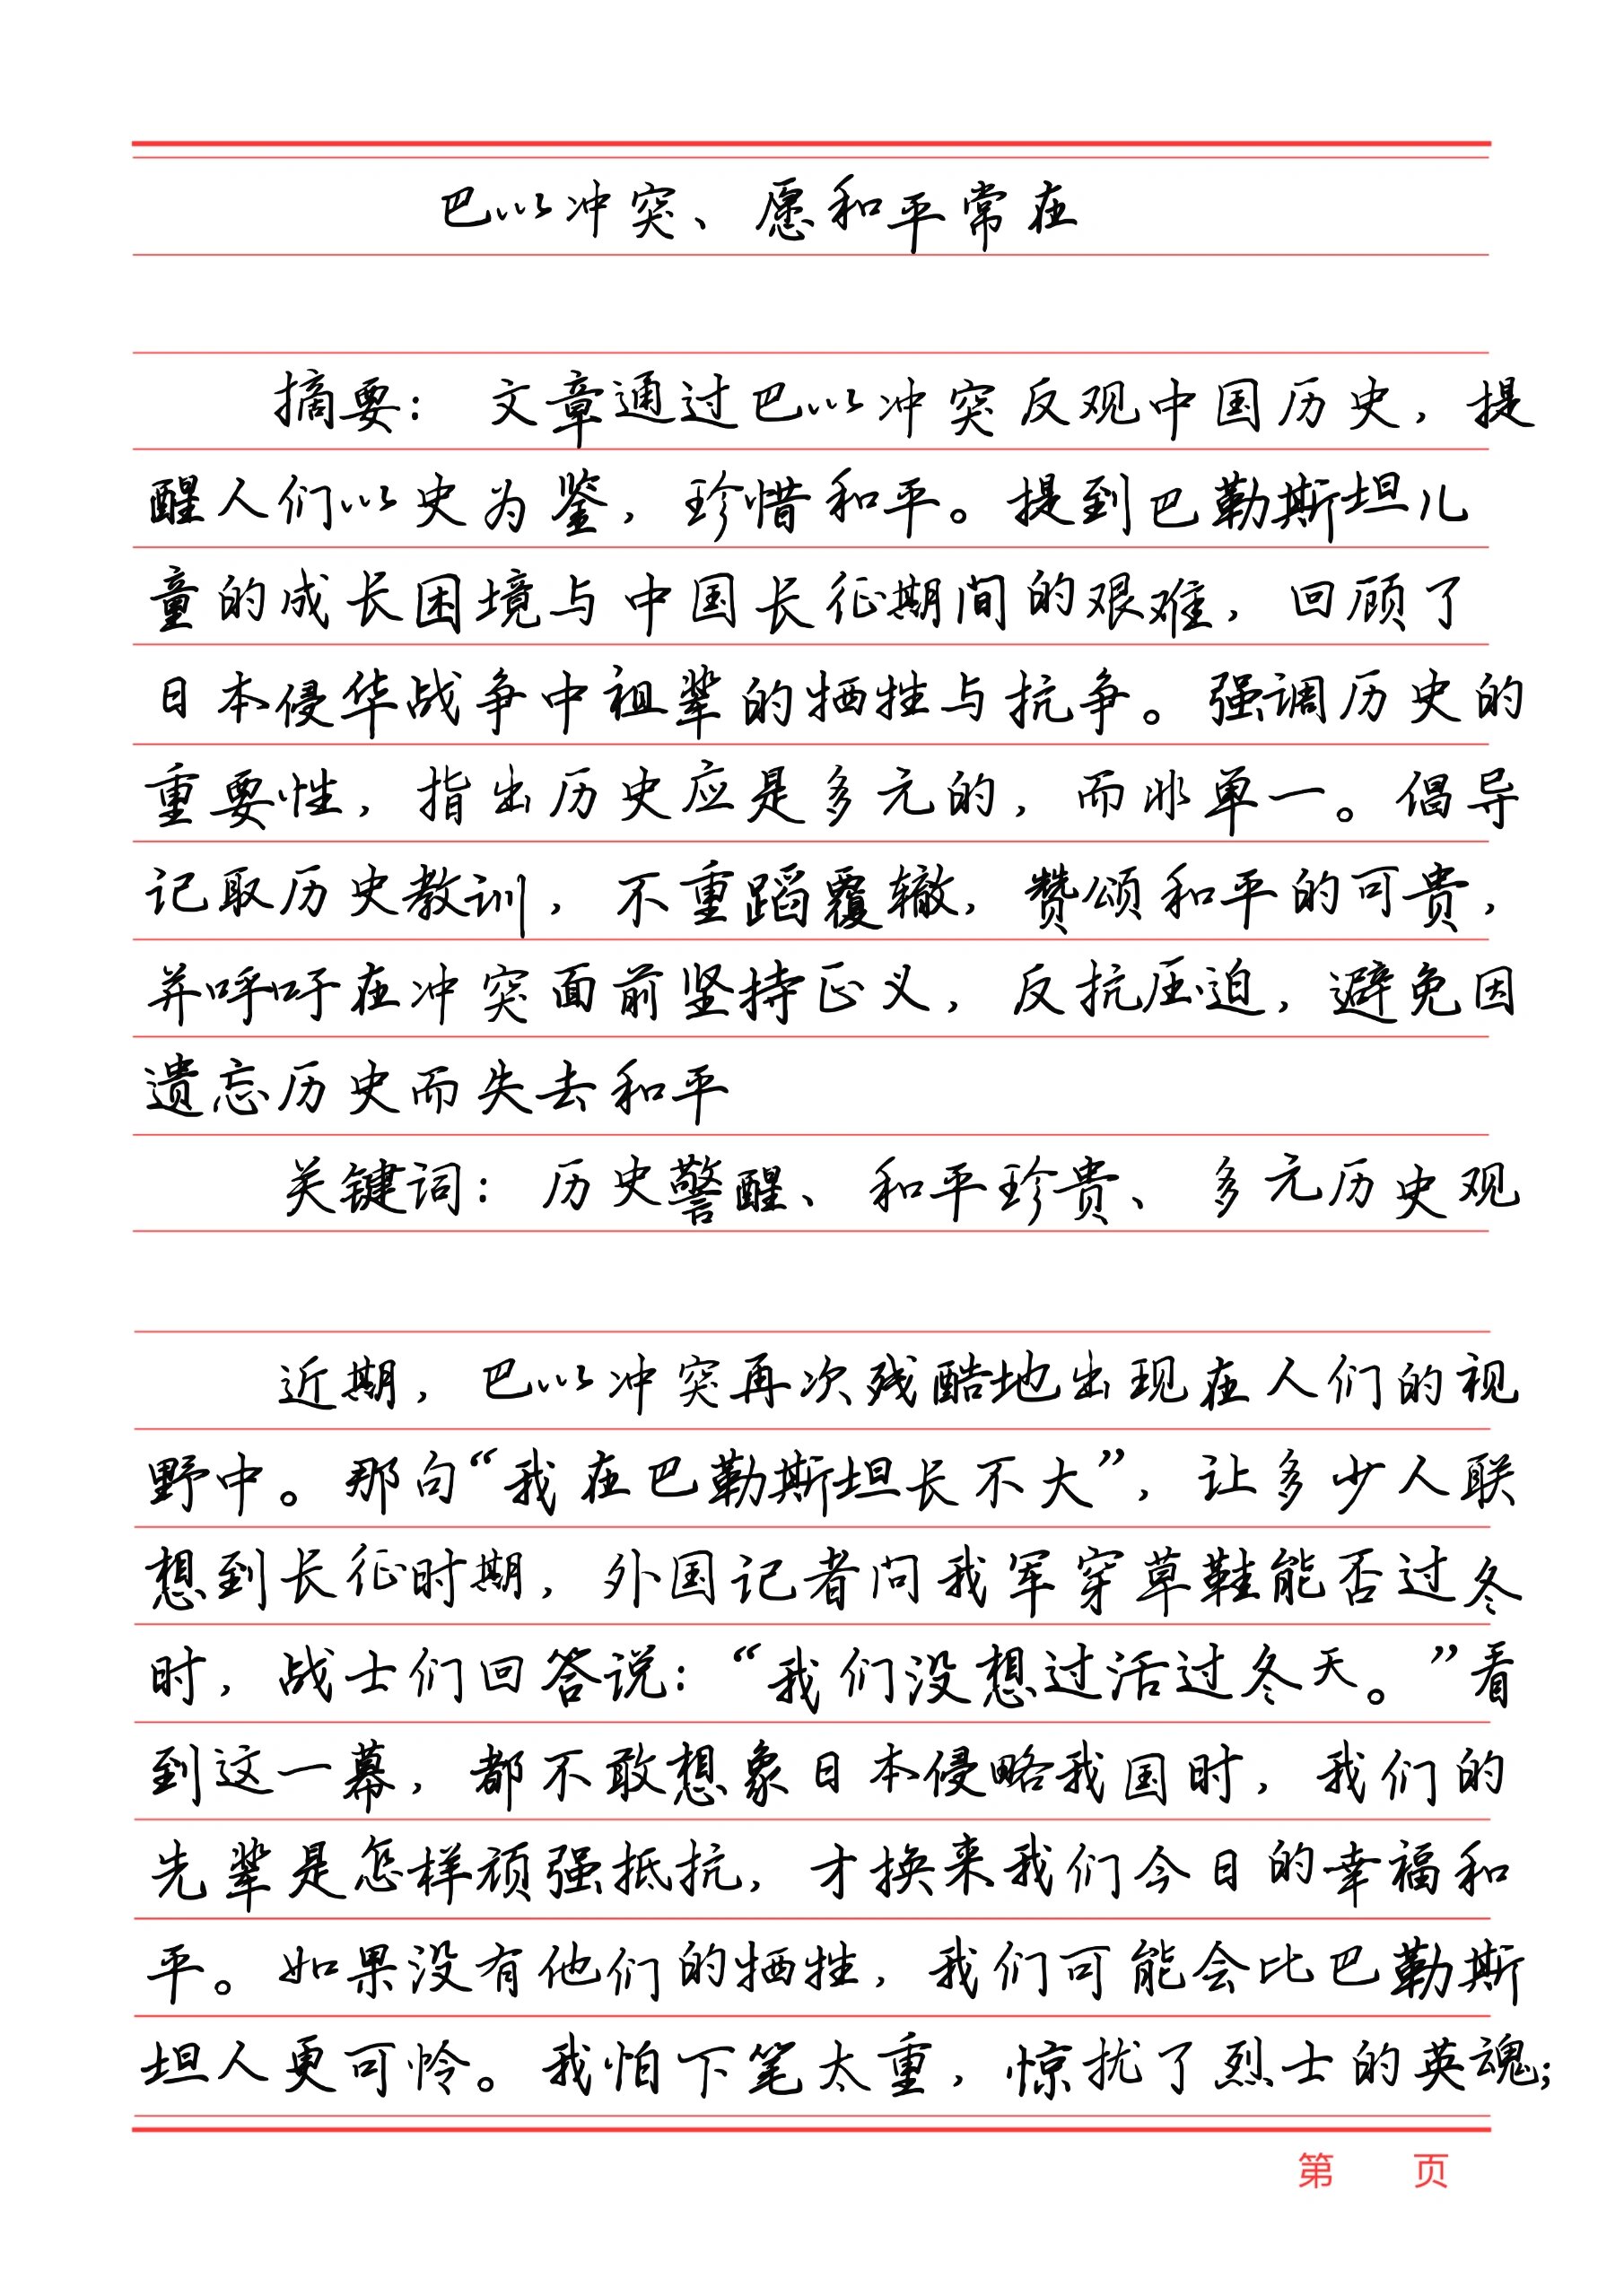 巴以冲突、愿和平常在
摘要：文章通过巴以冲突反观中国历史，提
醒人们以史为鉴，珍惜和平。提到巴勒斯坦儿
童的成长困境与中国长征期间的艰难，回顾了
日本侵华战争中祖辈的牺牲与抗争。强调历史的
重要性，指出历史应是多元的，而非单一。倡导
记取历史教训，不重蹈覆辙，赞颂和平的可贵，
并呼吁在冲突面前坚持正义，反抗压迫，避免因
遗忘历史而失去和平
关键词：历史警醒、和平珍贵、多元历史观
近期，巴以冲突再次残酷地出现在人们的视
野中。那句“我在巴勒斯坦长不大”，让多少人联
想到长征时期，外国记者问我军穿草鞋能否过冬
时，战士们回答说：“我们没想过活过冬天。”看
到这一幕，都不敢想象日本侵略我国时，我们的
先辈是怎样顽强抵抗，才换来我们今日的幸福和
平。如果没有他们的牺牲，我们可能会比巴勒斯
坦人更可怜。我怕下笔太重，惊扰了烈士的英魂；
第 页